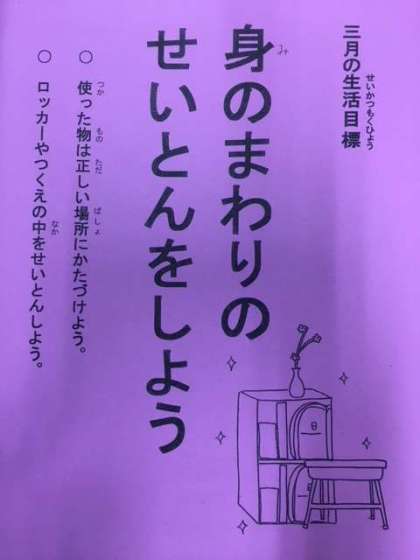 三月の生活目標
身のまわりの
せいとんをしよう
○ 使った物は正しい場所にかたづけよう。
○ ロッカーやつくえの中をせいとんしよう。
せいかつもくひょう
み
つか もの ただ ばしょ
なか